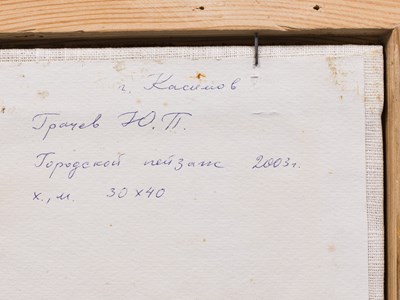 г. Касимов
Грачев Ю.П.
Городской пейзаж 2003г.
х., м. 30х40